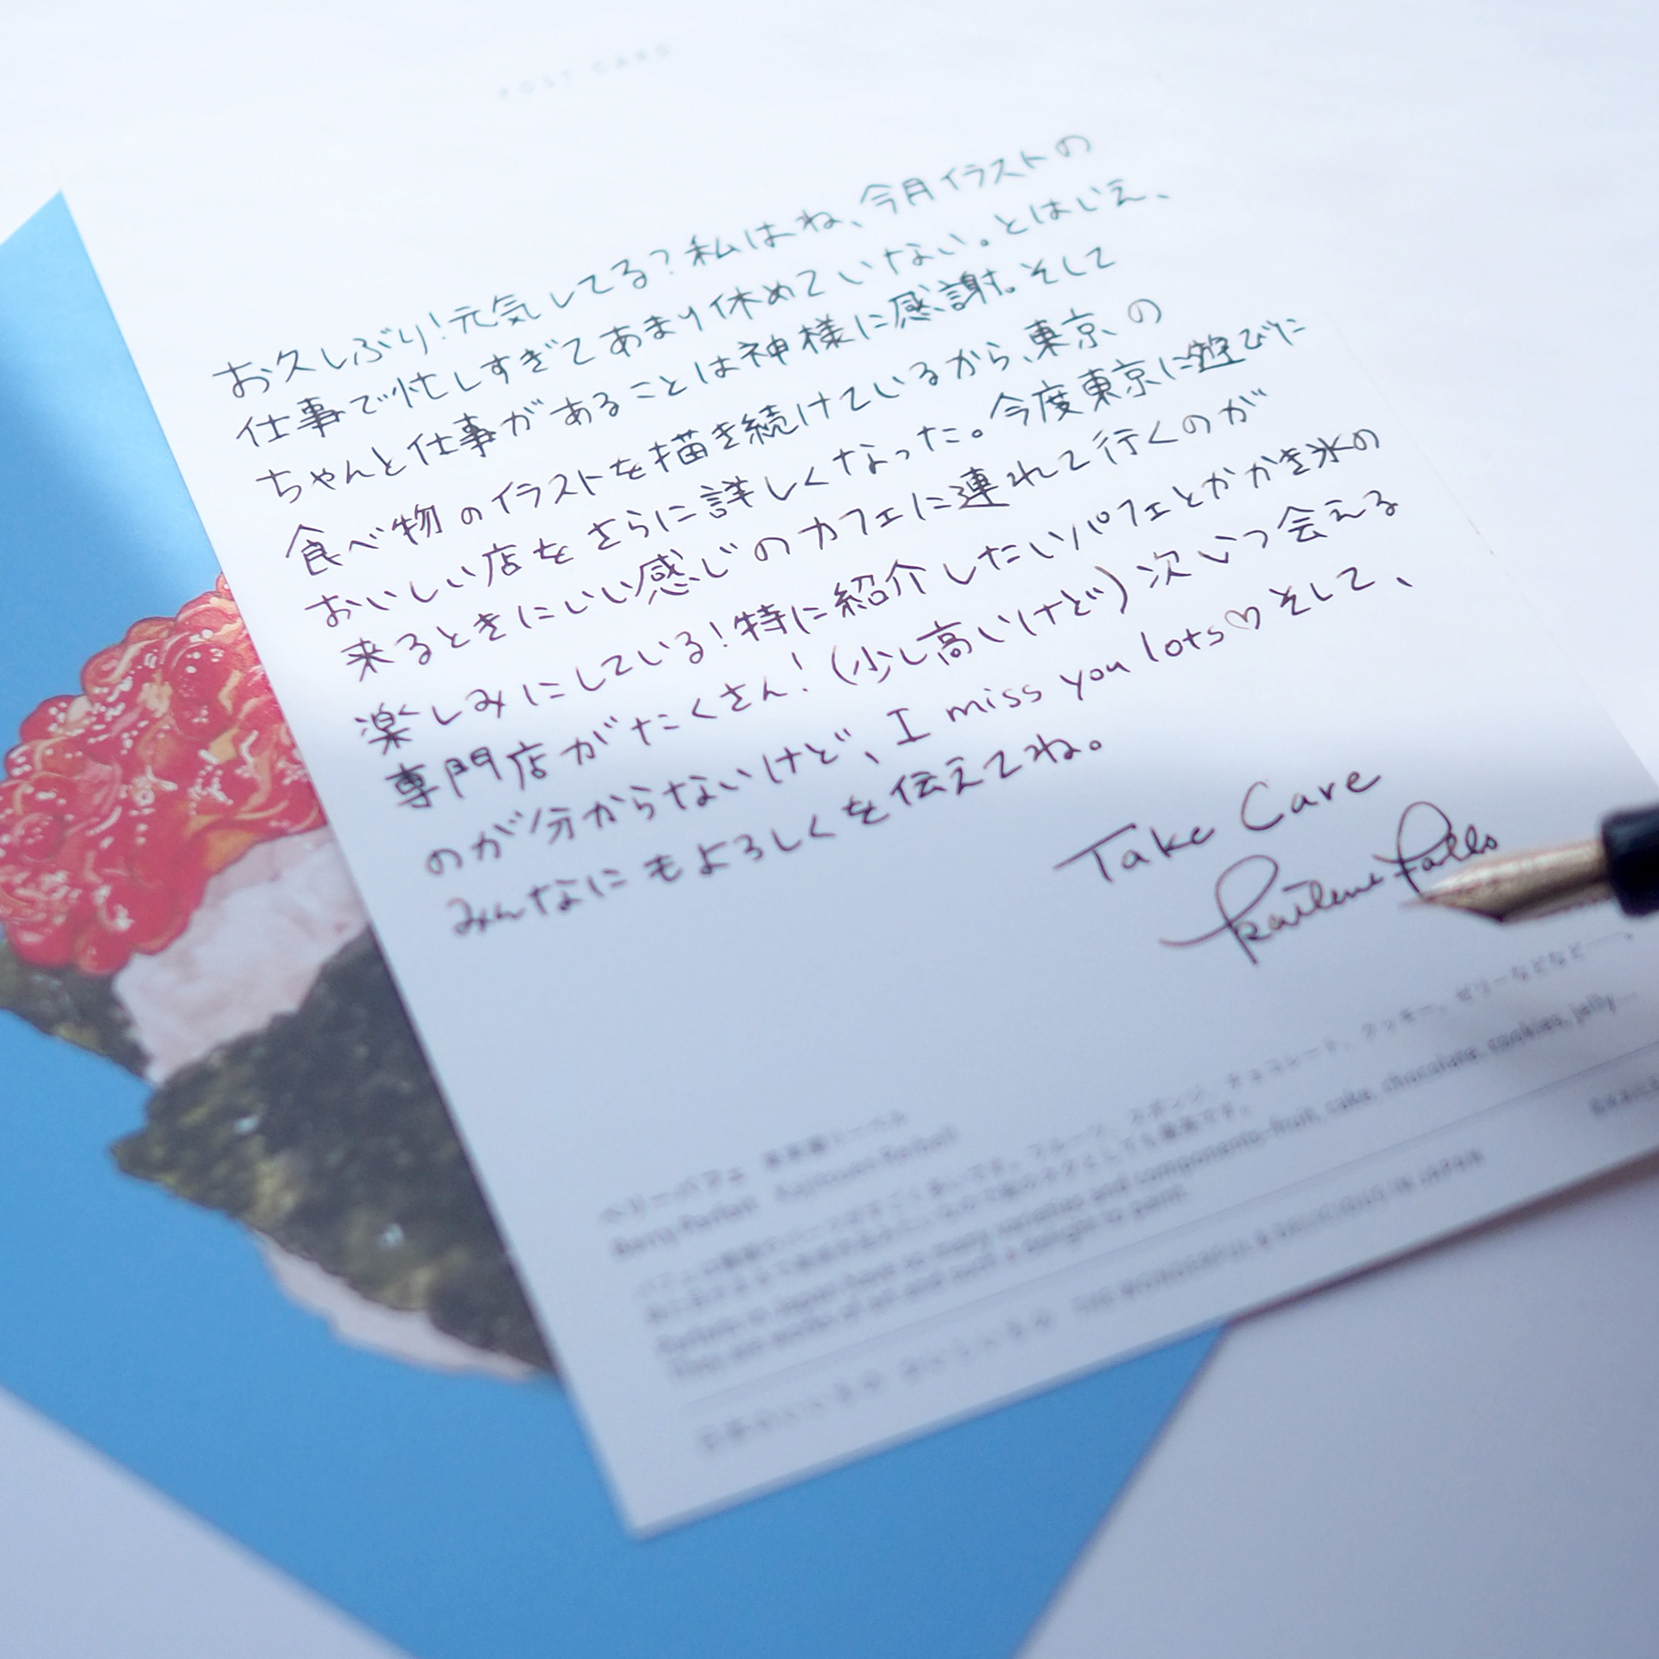 POST CARD
お久しぶり！元気してる？私はね、今月イラストの
仕事で忙しすぎてあまり休めていない。とはいえ、
ちゃんと仕事があることは神様に感謝。そして
食べ物のイラストを描き続けているから、東京の
おいしい店をさらに詳しくなった。今度東京に遊びに
来るときにいい感じのカフェに連れて行くのが
楽しみにしている！特に紹介したいパフェとかかき氷の
専門店がたくさん！（少し高いけど）次いつ会える
のが分からないけど、I miss you lots♡そして、
みんなにもよろしくを伝えてね。
Take Care
ベリーパフェ
Berry Parfait
フルーツ、スポンジ、チョコレート、クッキー、ゼリーなどなど
Parfaits in Japan have so many varieties and components-fruit, cake, chocolate, cookies, jelly...
They are works of art and such a delight to paint.
THE WONDERFUL & DELICIOUS IN JAPAN